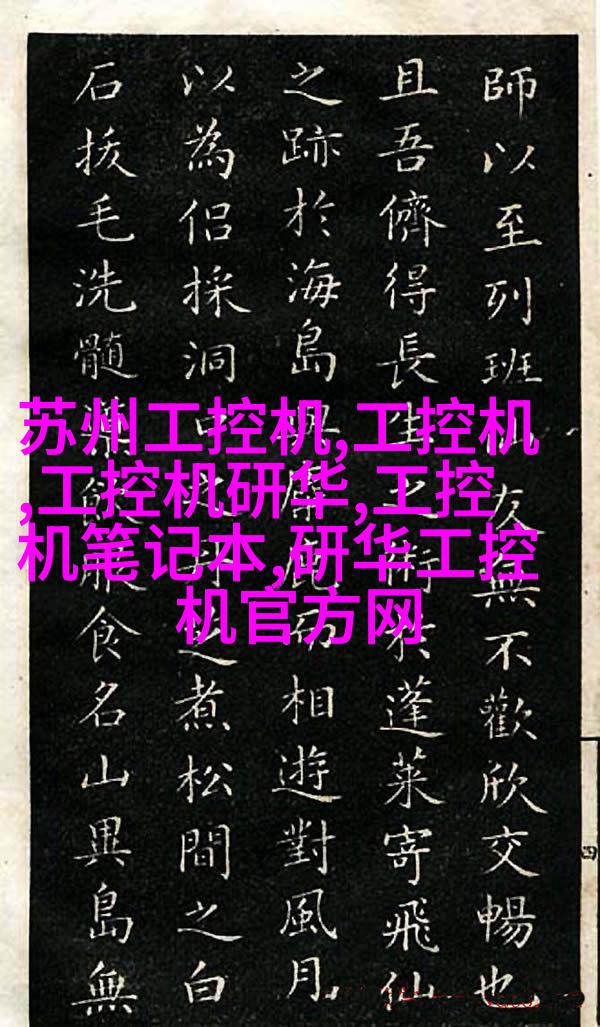 師以至列班仙友無不歡欣交暢也
且吾儕得長生之術於蓬萊寄飛仙
之跡於海島相遊對風月
以為侶採洞中之煮松間之白
石拔毛洗髓服食名山異島無
苏州工控机,工控机
,工控机研华,工控
机笔记本,研华工控
机官方网
四